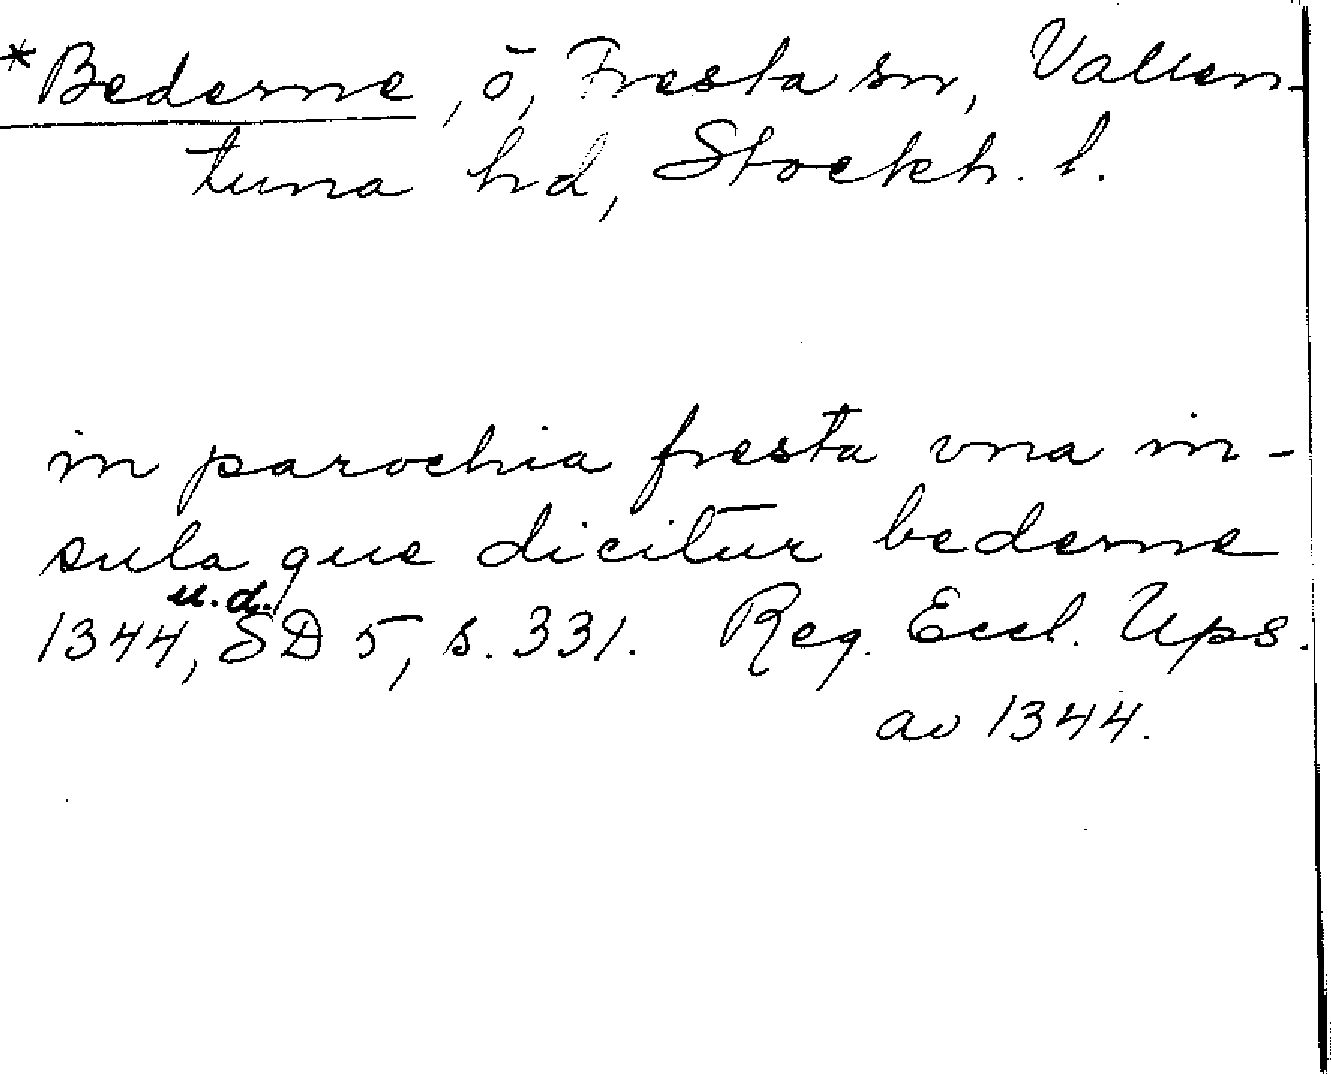 *Bederne, ö, Fresta sn, Vallen-
tuna hd, Stockh. l.
in parochia fresta vna in-
sula que dicitur bederne
u.d.
1344, SD 5, s. 331. Reg. Eccl. Ups.
av 1344.